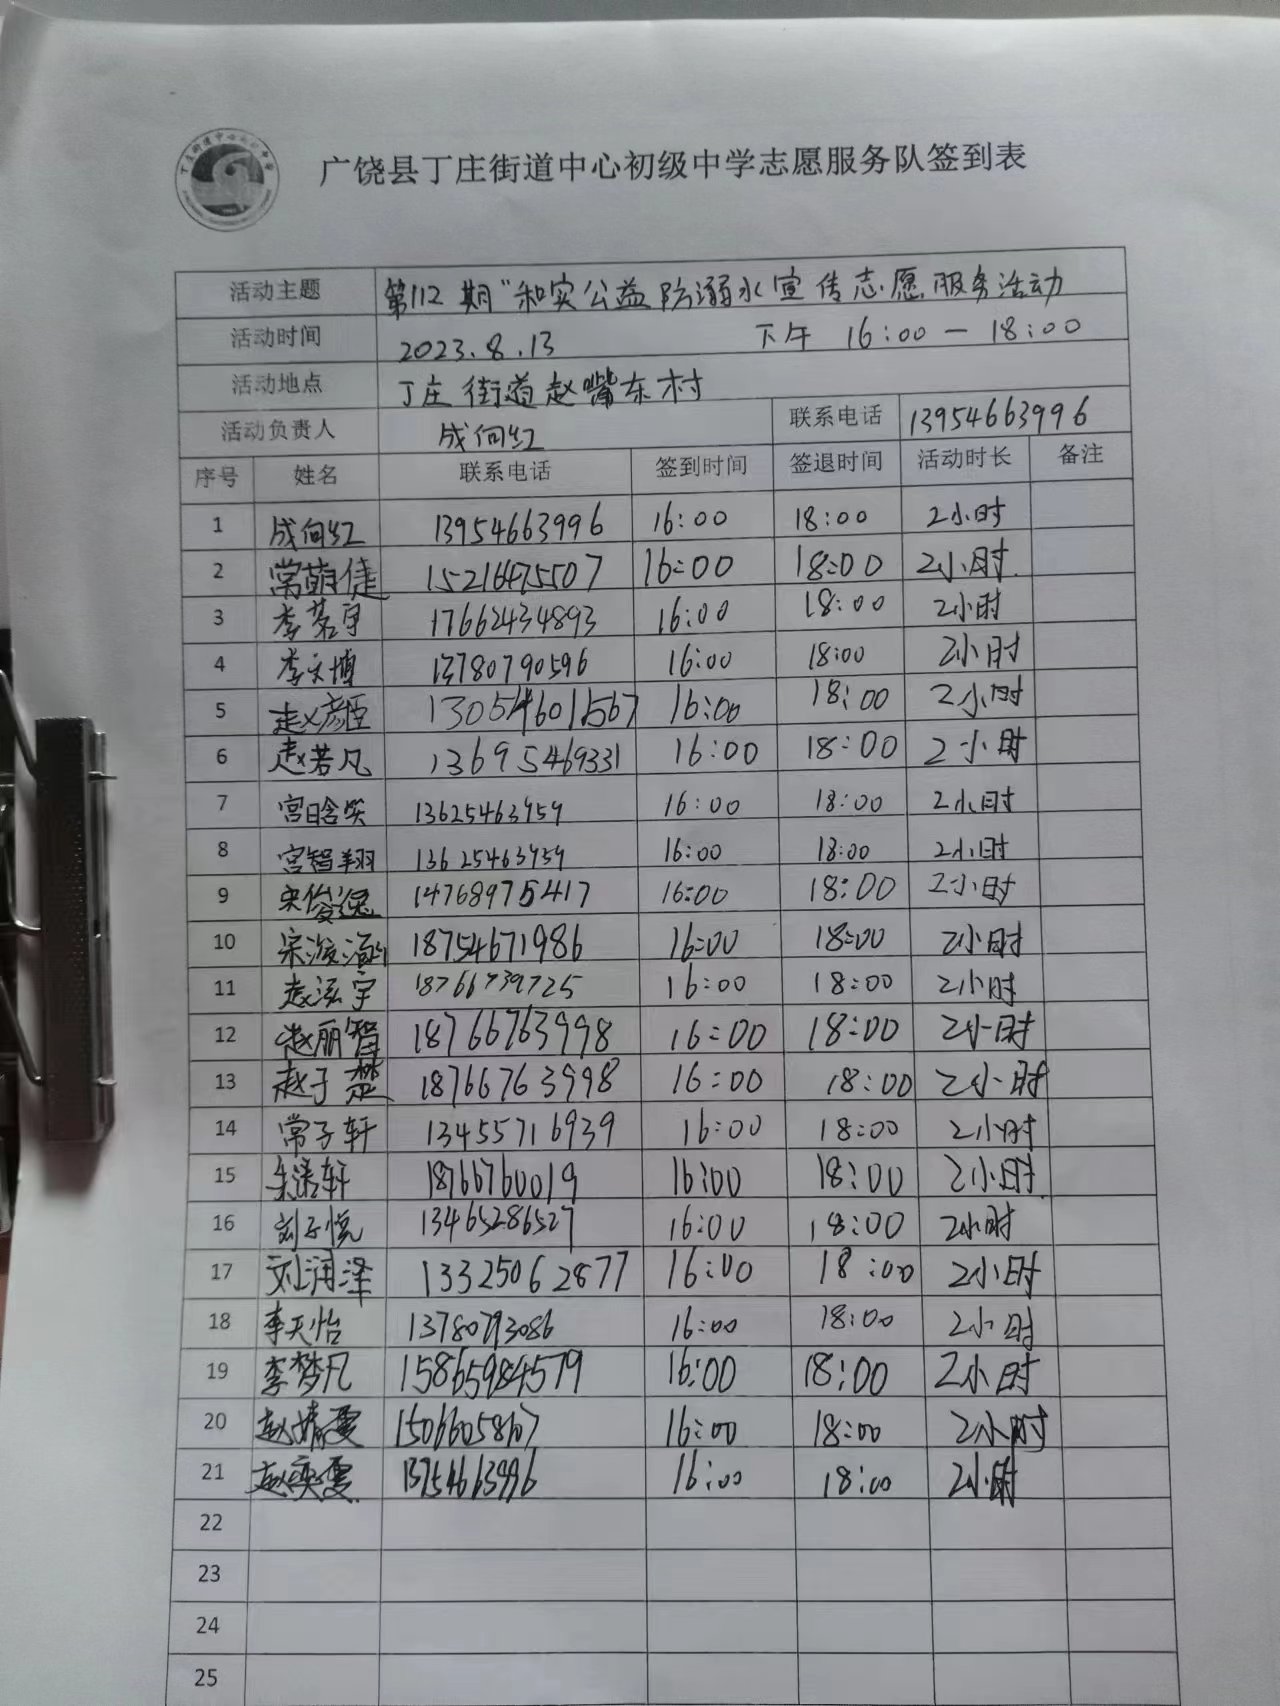 广饶县丁庄街道中心初级中学志愿服务队签到表
活动主题 第112期"和实公益防溺水宣传志愿服务活动
活动时间 2023.8.13 下午 16:00—18:00
活动地点 丁庄街道赵嘴东村
活动负责人 成向红 联系电话 13954663996
序号 姓名 联系电话 签到时间 签退时间 活动时长 备注
1 成向红 13954663996 16:00 18:00 2小时
2 常萌倢 15216475507 16:00 18:00 2小时
3 李茗宇 17662434893 16:00 18:00 2小时
4 李文博 13780790596 16:00 18:00 2小时
5 赵彦臣 13054601567 16:00 18:00 2小时
6 赵若凡 13695469331 16:00 18:00 2小时
7 宫晗笑 13625463959 16:00 18:00 2小时
8 宫智翔 13625463959 16:00 18:00 2小时
9 宋俊逸 14768975417 16:00 18:00 2小时
10 宋浚 18754671986 16:00 18:00 2小时
11 赵泓宇 18766739725 16:00 18:00 2小时
12 赵丽智 18766763998 16:00 18:00 2小时
13 赵子楚 18766763998 16:00 18:00 2小时
14 常子轩 13455716939 16:00 18:00 2小时
15 轩 18766760019 16:00 18:00 2小时
16 刘子悦 13465286527 16:00 18:00 2小时
17 刘润泽 13325062877 16:00 18:00 2小时
18 李天怡 13780793086 16:00 18:00 2小时
19 李梦凡 15865984579 16:00 18:00 2小时
20 赵婧雯 15066058167 16:00 18:00 2小时
21 赵奕雯 13954663996 16:00 18:00 2小时
22
23
24
25